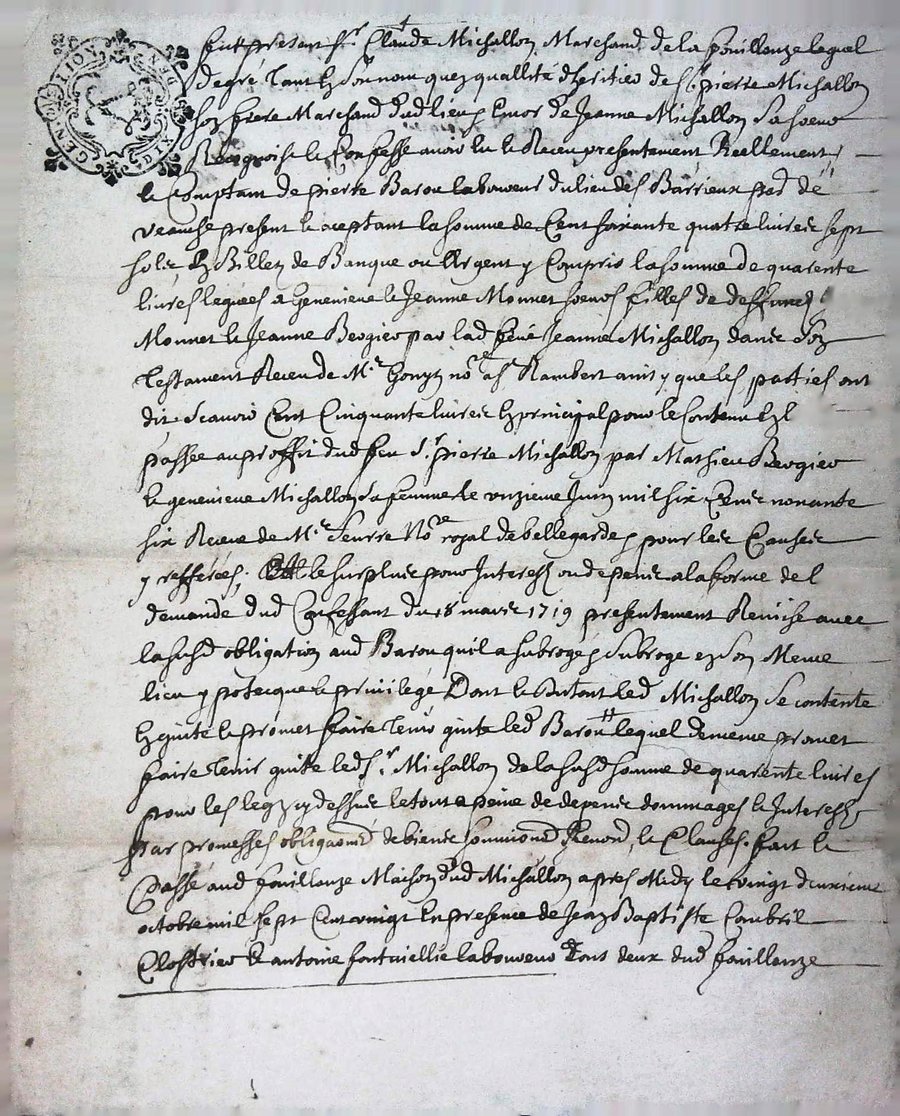 fut present Sr. Claude Michallon Marchand de la fouillouze lequel
de gré tant en son nom que quallité d'heritier de Sr. pierre Michallon
son frere Marchand dud lieu, & de Jeanne Michallon sa soeur
& Confesse avoir eu & Receu presentement Reellement,
& Comptant de pierre Barou laboureur du lieu des Barrieux
present & aceptant la somme de Cent soixante quatre livres sept
sols, en Billets de Banque ou Argent y Compris la somme de quarente
livres leguées a Genevieve & Jeanne Monnet soeurs filles de deffunct
Monnet & Jeanne Bergier par lad feue Jeanne Michallon dans son
Testament Receu de Me. Gonyn nore. a St. Rambert ainsy que les parties ont
dit Scavoir Cent Cinquante livres en principal pour le Contenu en
passée au proffit dud feu Sr. pierre Michallon par Mathieu Bergier
& genevieve Michallon sa femme le unzieme Juin mil six Cents nonante
six Receue de Me. Nore royal de bellegarde, pour les Causes
y refferées, & le surplus pour Interest ou depens a la forme de
demande dud Confessant du 18 mars 1719 presentement Remise avec
la susd obligation aud Barou qu'il a subrogé, subroge en son Meme
lieu ypotecque & privilege Dont & du tout led Michallon se contente
en quitte & promet faire tenir quite led Barou lequel de meme promet
faire tenir quite led Sr. Michallon de la susd somme de quarente livres
pour les legs cy dessus le tout a peine de depens dommages & Interests
par promesses obligaons de biens soumissions Renons & Clauses. fait &
Passé aud fouillouze Maison dud Michallon apres Midy le vingt deuxieme
octobre mil sept Cent vingt En presence de Jean Baptiste
& antoine laboureur Tous deux dud fouillouze